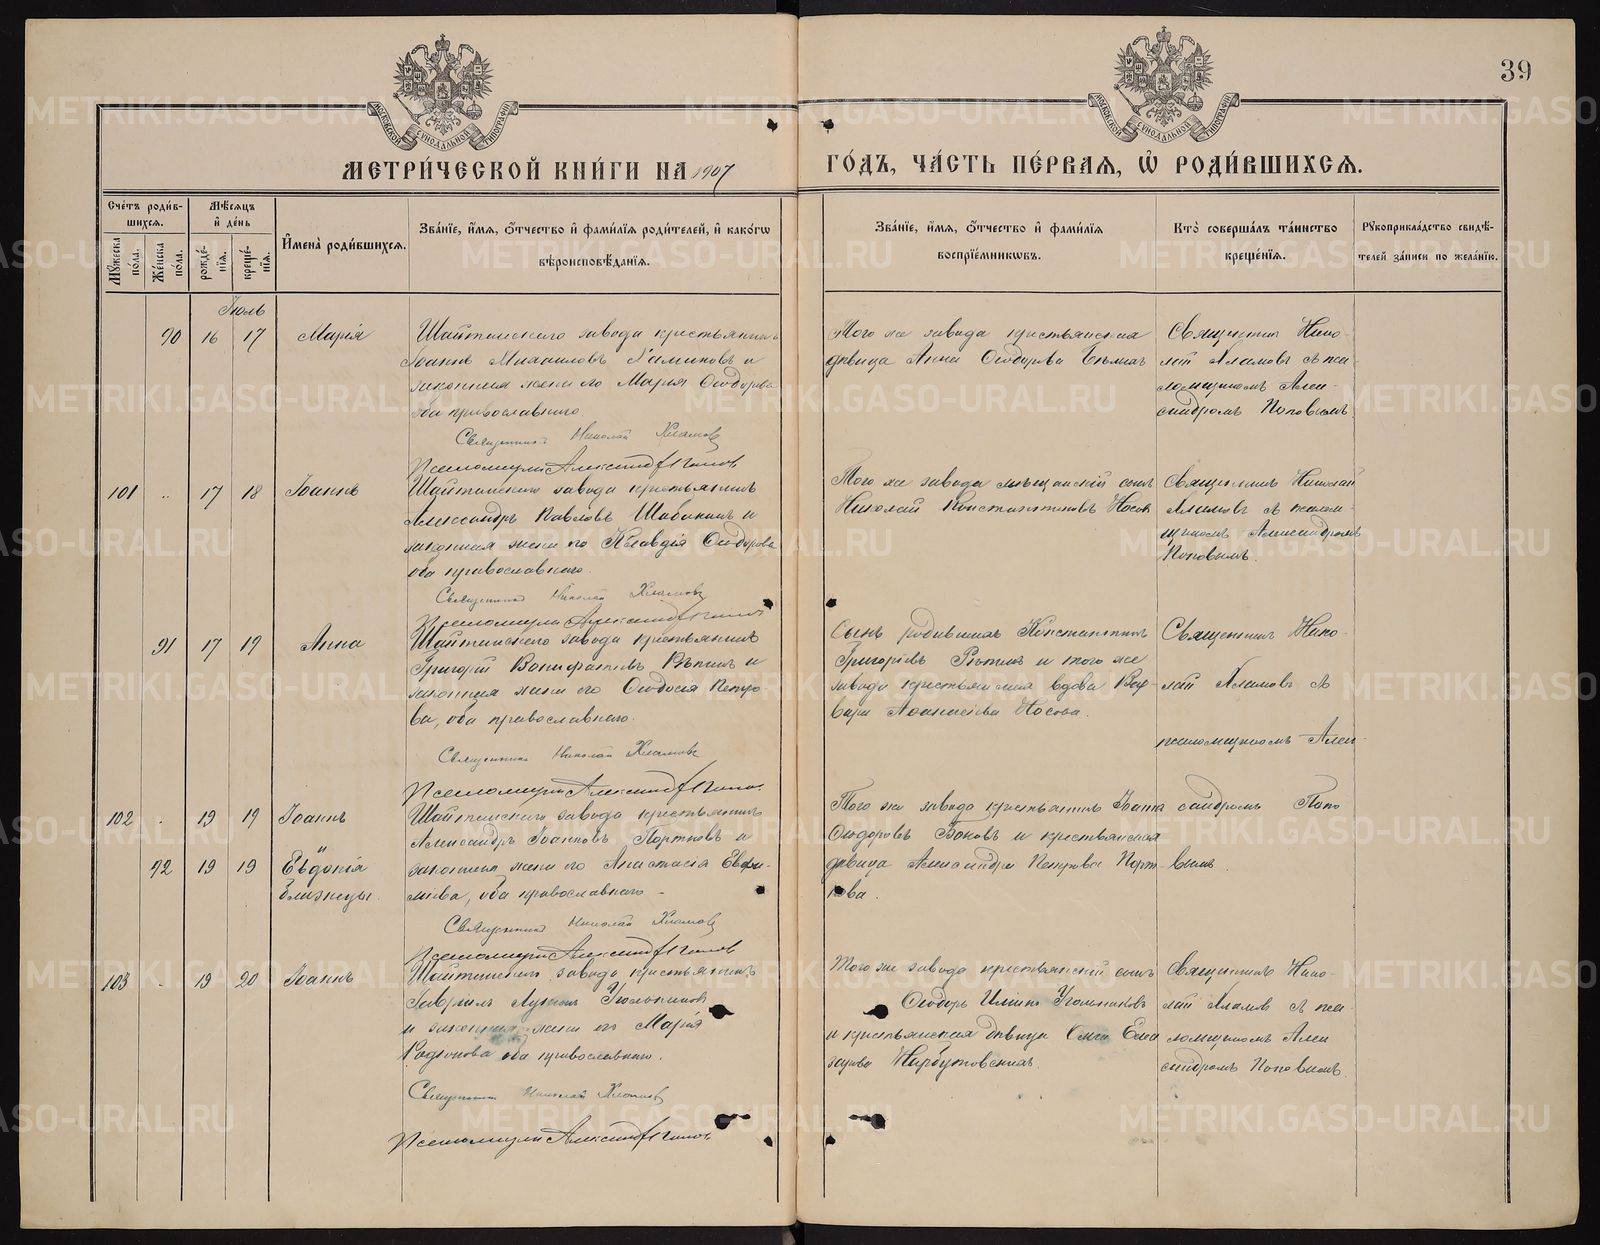 39
МЕТРИ́ЧЕСКОЙ КНИ́ГИ НА 1907 ГО́ДЪ, ЧА́СТЬ ПЕ́РВАЯ, Ѡ҆ РОДИ́ВШИХСЯ.
Сче́тъ роди́в-
шихся.
Мꙋ́жеска по́ла.
Же́нска по́ла.
Мѣ́сяцъ
и҆ де́нь
рожде́-
нїя.
креще́-
нїя.
И҆мена̀ роди́вшихся.
Зва́нїе, и҆́мя, ѻ҆́тчество и҆ фами́лїя роди́телей, и҆ како́гѡ
вѣроисповѣ́данїя.
Зва́нїе, и҆́мя, ѻ҆́тчество и҆ фами́лїя
воспрїе́мникѡвъ.
Кто̀ соверша́лъ та́инство
креще́нїя.
Рꙋкоприкла́дство свидѣ́-
телей за́писи по жела́нїю.
Іюль
90 16 17 Марія
Шайтанскаго завода крестьянинъ
Іоаннъ Михаиловъ и
законная жена его Марія Ѳеодорова
оба православнаго
Священникъ Николай Хламовъ
Псаломщикъ Александръ Поповъ
Того же завода крестьянская
дѣвица Анна Ѳеодорова
Священникъ Нико-
лай Хламовъ съ пса-
ломщикомъ Алек-
сандромъ Поповымъ
101 .. 17 18 Іоаннъ
Шайтанскаго завода крестьянинъ
Александръ Павловъ Шабанинъ и
законная жена его Клавдія Ѳеодорова
оба православнаго.
Священникъ Николай Хламовъ
Псаломщикъ Александръ Поповъ
Того же завода мѣщанскій сынъ
Николай Константиновъ Носовъ
Священникъ Николай
Хламовъ съ псалом-
щикомъ Александромъ
Поповымъ.
91 17 19 Анна
Шайтанскаго завода крестьянинъ
Григорій Вонифатіевъ и
законная жена его Ѳеодосія Петро-
ва, оба православнаго.
Священникъ Николай Хламовъ
Псаломщикъ Александръ Поповъ
Сынъ родившихъ Константинъ
Григоріевъ и того же
завода крестьянская вдова Вар-
вара Аѳанасіева Носова.
Священникъ Нико-
лай Хламовъ съ
псаломщикомъ Алек-
сандромъ Попо
вымъ
102 . 19 19 Іоаннъ
92 19 19 и Евдокія
близнецы.
Шайтанскаго завода крестьянинъ
Александръ Іоанновъ Портновъ и
законная жена его Анастасія Евѳи-
міева, оба православнаго
Священникъ Николай Хламовъ
Псаломщикъ Александръ Поповъ
Того же завода крестьянинъ Іоаннъ
Ѳеодоровъ Боковъ и крестьянская
дѣвица Александра Петрова Порт
нова.
103 . 19 20 Іоаннъ
Шайтанскаго завода крестьянинъ
Гавріилъ Лукинъ Угольниковъ
и законная жена его Марія
Родіонова оба православнаго.
Священникъ Николай Хламовъ
Псаломщикъ Александръ Поповъ
Того же завода крестьянскій сынъ
Ѳеодоръ Ильинъ Угольниковъ
и крестьянская дѣвица Елеа
зарова
Священникъ Нико-
лай Хламовъ съ пса-
ломщикомъ Алек
сандромъ Поповымъ.
METRIKI.GASO-URAL.RU